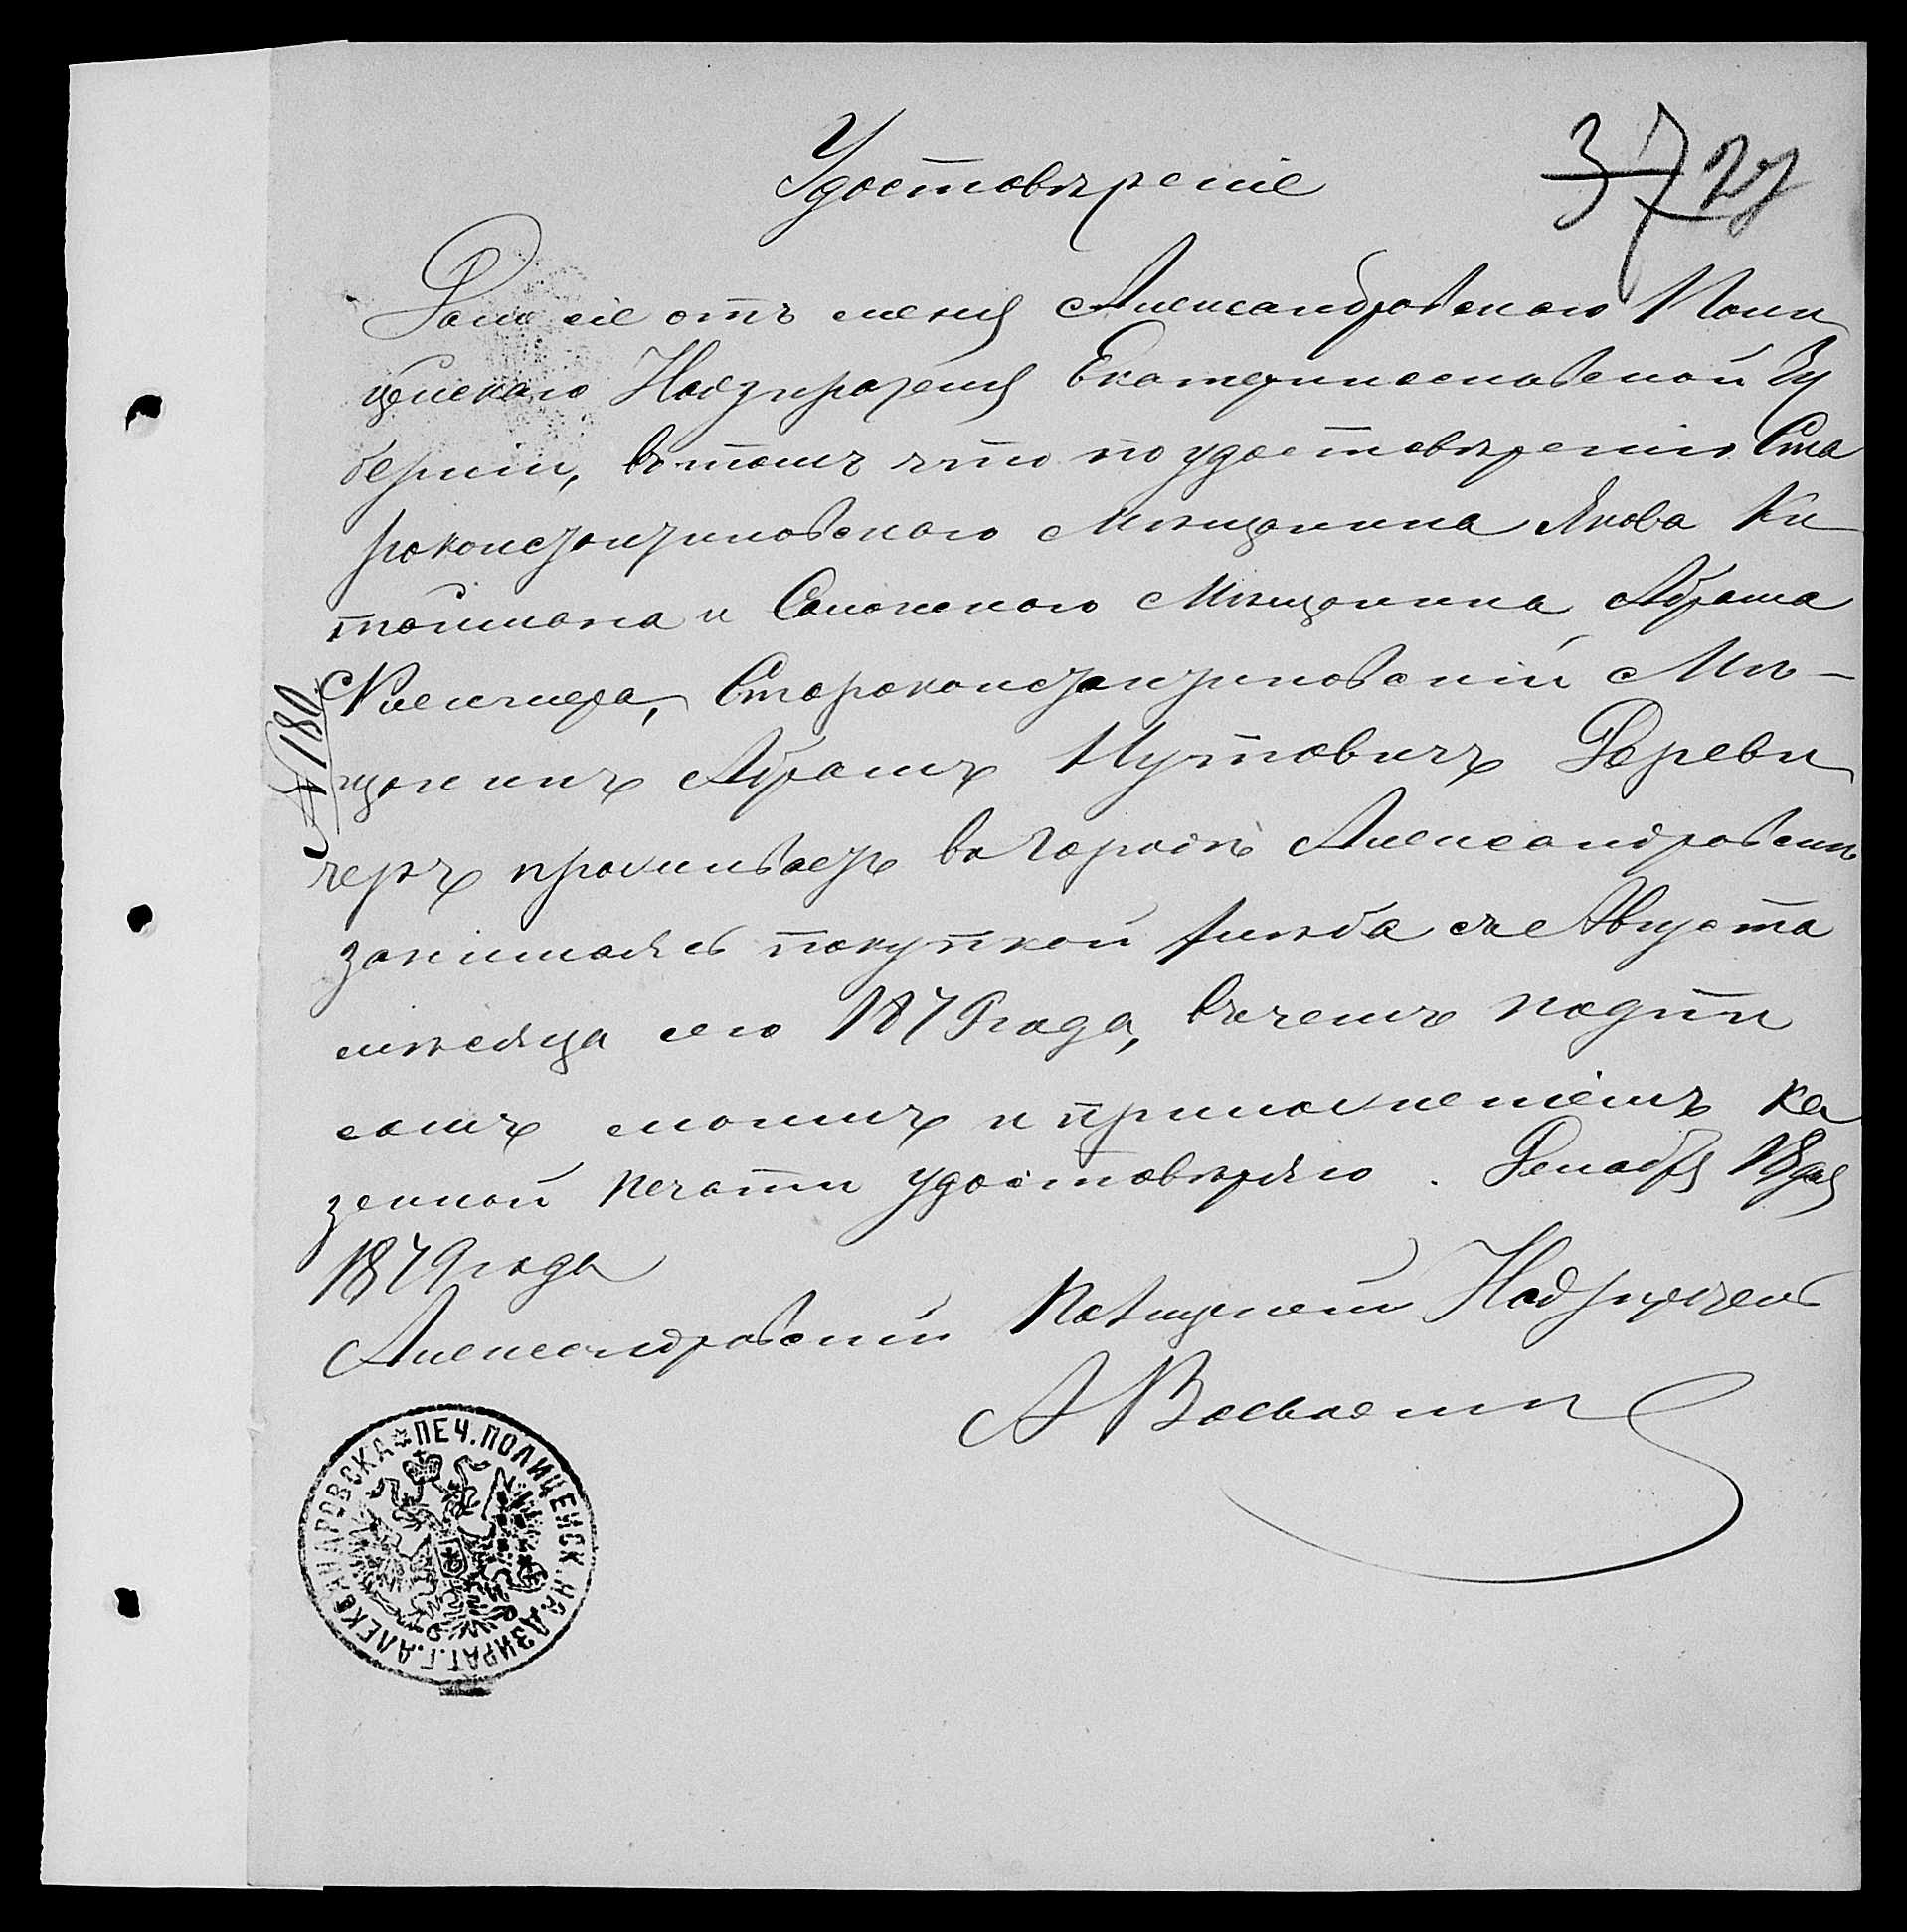 Удостовѣреніе
37 27
Дано сіе отъ меня Александровскаго Поли
цейскаго Надзирателя Екатеринославской Гу
берніи, въ томъ что по удостовѣренію Ста
роконстантиновскаго Мѣщанина Якова Ки
тайтмана и Мѣщанина Абрама
Староконстантиновскій Мѣ-
щанинъ Абрамъ Нутовичъ Дереви
черъ проживаетъ въ городѣ Александровскѣ
занимаясь покупкой хлѣба съ Августа
мѣсяца сего 1879 года, въ чемъ подпи
сомъ моимъ и приложеніемъ ка
зенной печати удостовѣряю. Декабря 18 дня
1879 года
Александровскій Полицейскій Надзиратель
№ 180
ПЕЧ. ПОЛИЦЕЙСК. НАДЗИРАТ. Г. АЛЕКСАНДРОВСКА